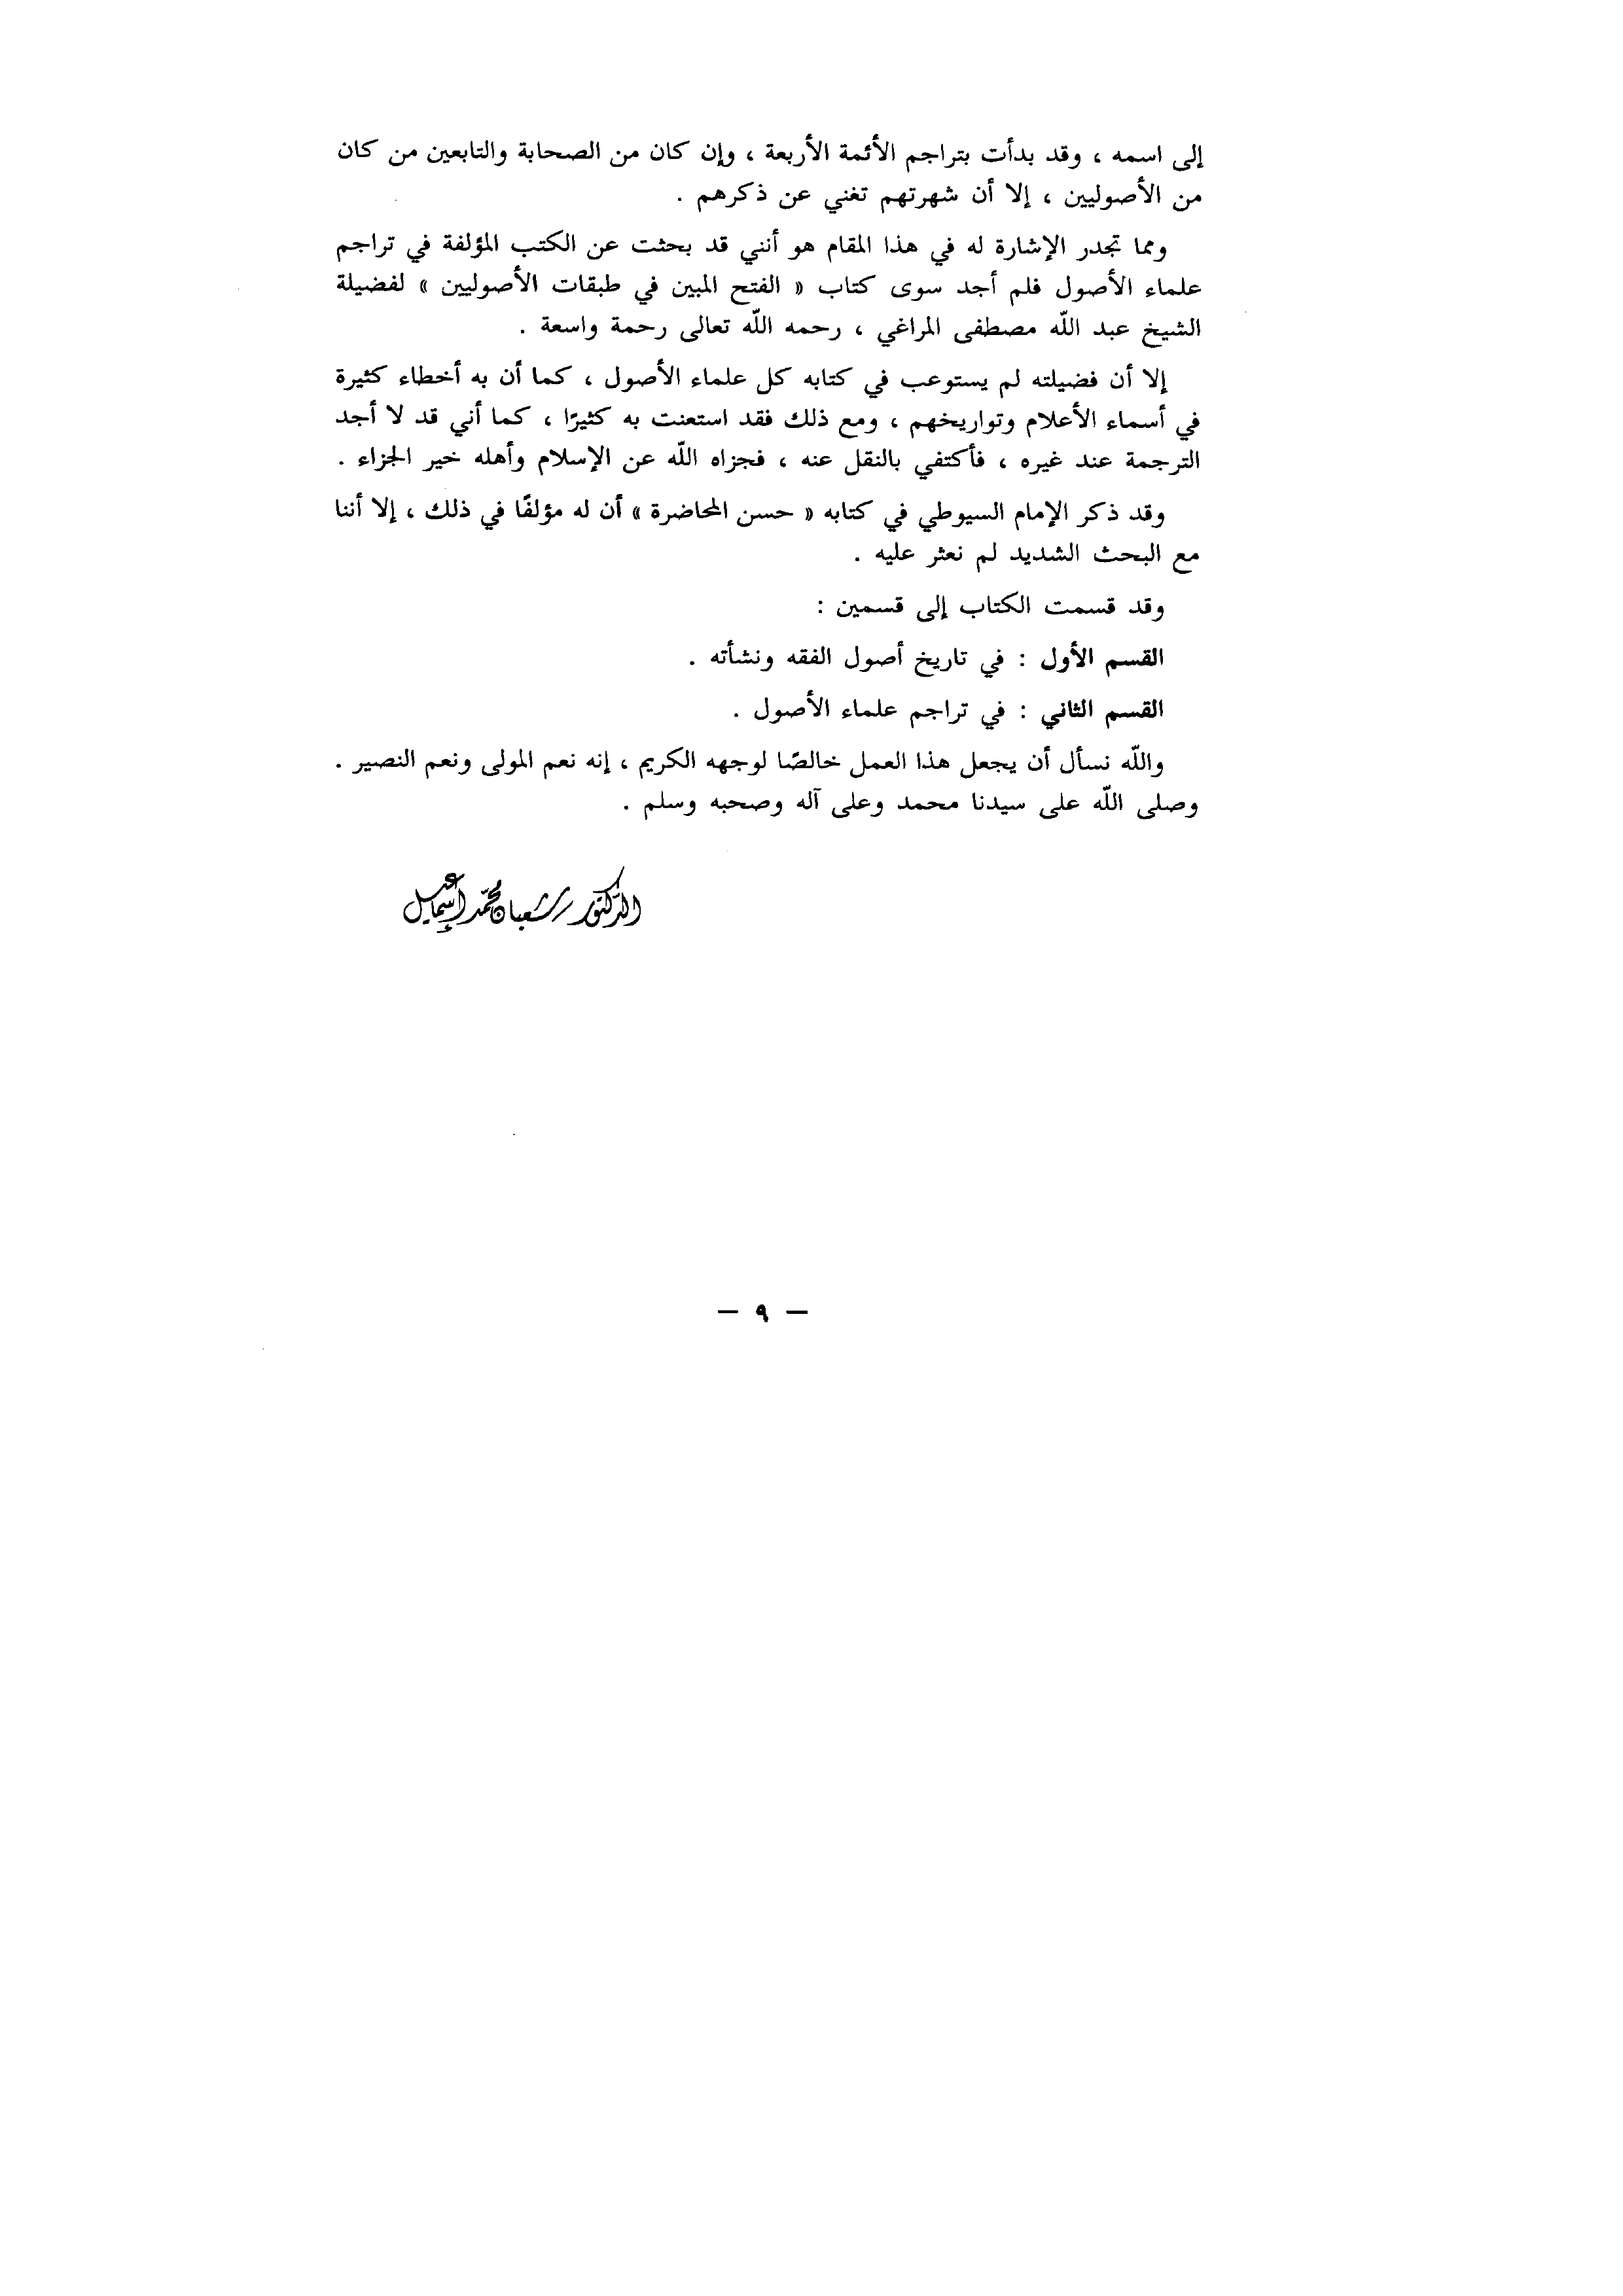 إلى اسمه ، وقد بدأت بتراجم الأئمة الأربعة ، وإن كان من الصحابة والتابعين من كان
من الأصوليين ، إلا أن شهرتهم تغني عن ذكرهم .
ومما تجدر الإشارة له في هذا المقام هو أنني قد بحثت عن الكتب المؤلفة في تراجم
علماء الأصول فلم أجد سوى كتاب « الفتح المبين في طبقات الأصوليين » لفضيلة
الشيخ عبد اللّه مصطفى المراغي ، رحمه اللّه تعالى رحمة واسعة .
إلا أن فضيلته لم يستوعب في كتابه كل علماء الأصول ، كما أن به أخطاء كثيرة
في أسماء الأعلام وتواريخهم ، ومع ذلك فقد استعنت به كثيرًا ، كما أني قد لا أجد
الترجمة عند غيره ، فأكتفي بالنقل عنه ، فجزاه اللّه عن الإسلام وأهله خير الجزاء .
وقد ذكر الإمام السيوطي في كتابه « حسن المحاضرة » أن له مؤلفًا في ذلك ، إلا أننا
مع البحث الشديد لم نعثر عليه .
وقد قسمت الكتاب إلى قسمين :
القسم الأول : في تاريخ أصول الفقه ونشأته .
القسم الثاني : في تراجم علماء الأصول .
واللّه نسأل أن يجعل هذا العمل خالصًا لوجهه الكريم ، إنه نعم المولى ونعم النصير .
وصلى اللّه على سيدنا محمد وعلى آله وصحبه وسلم .
الدكتور شعبان محمد إسماعيل
— ٩ —